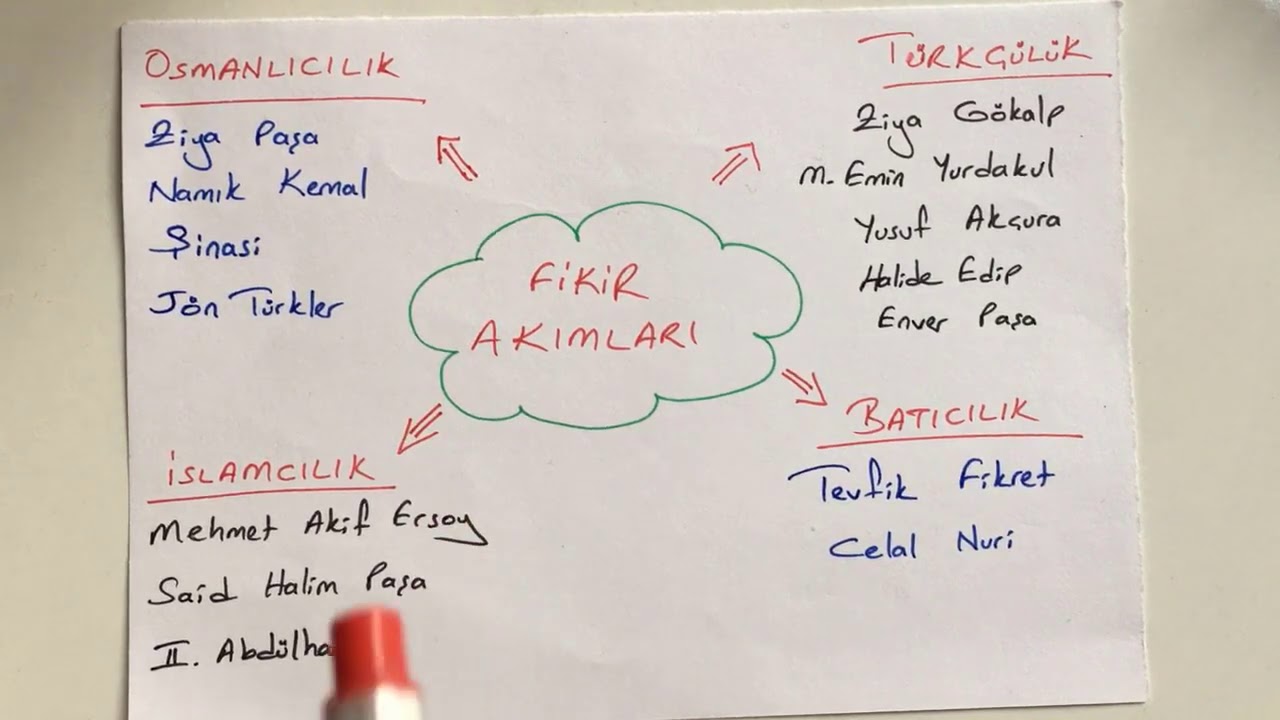 OSMANLICILIK
Ziya Paşa
Namık Kemal
Şinasi
Jön Türkler
TÜRKÇÜLÜK
Ziya Gökalp
M. Emin Yurdakul
Yusuf Akçura
Halide Edip
Enver Paşa
FİKİR
AKIMLARI
İSLAMCILIK
Mehmet Akif Ersoy
Said Halim Paşa
II.
BATICILIK
Tevfik Fikret
Celal Nuri